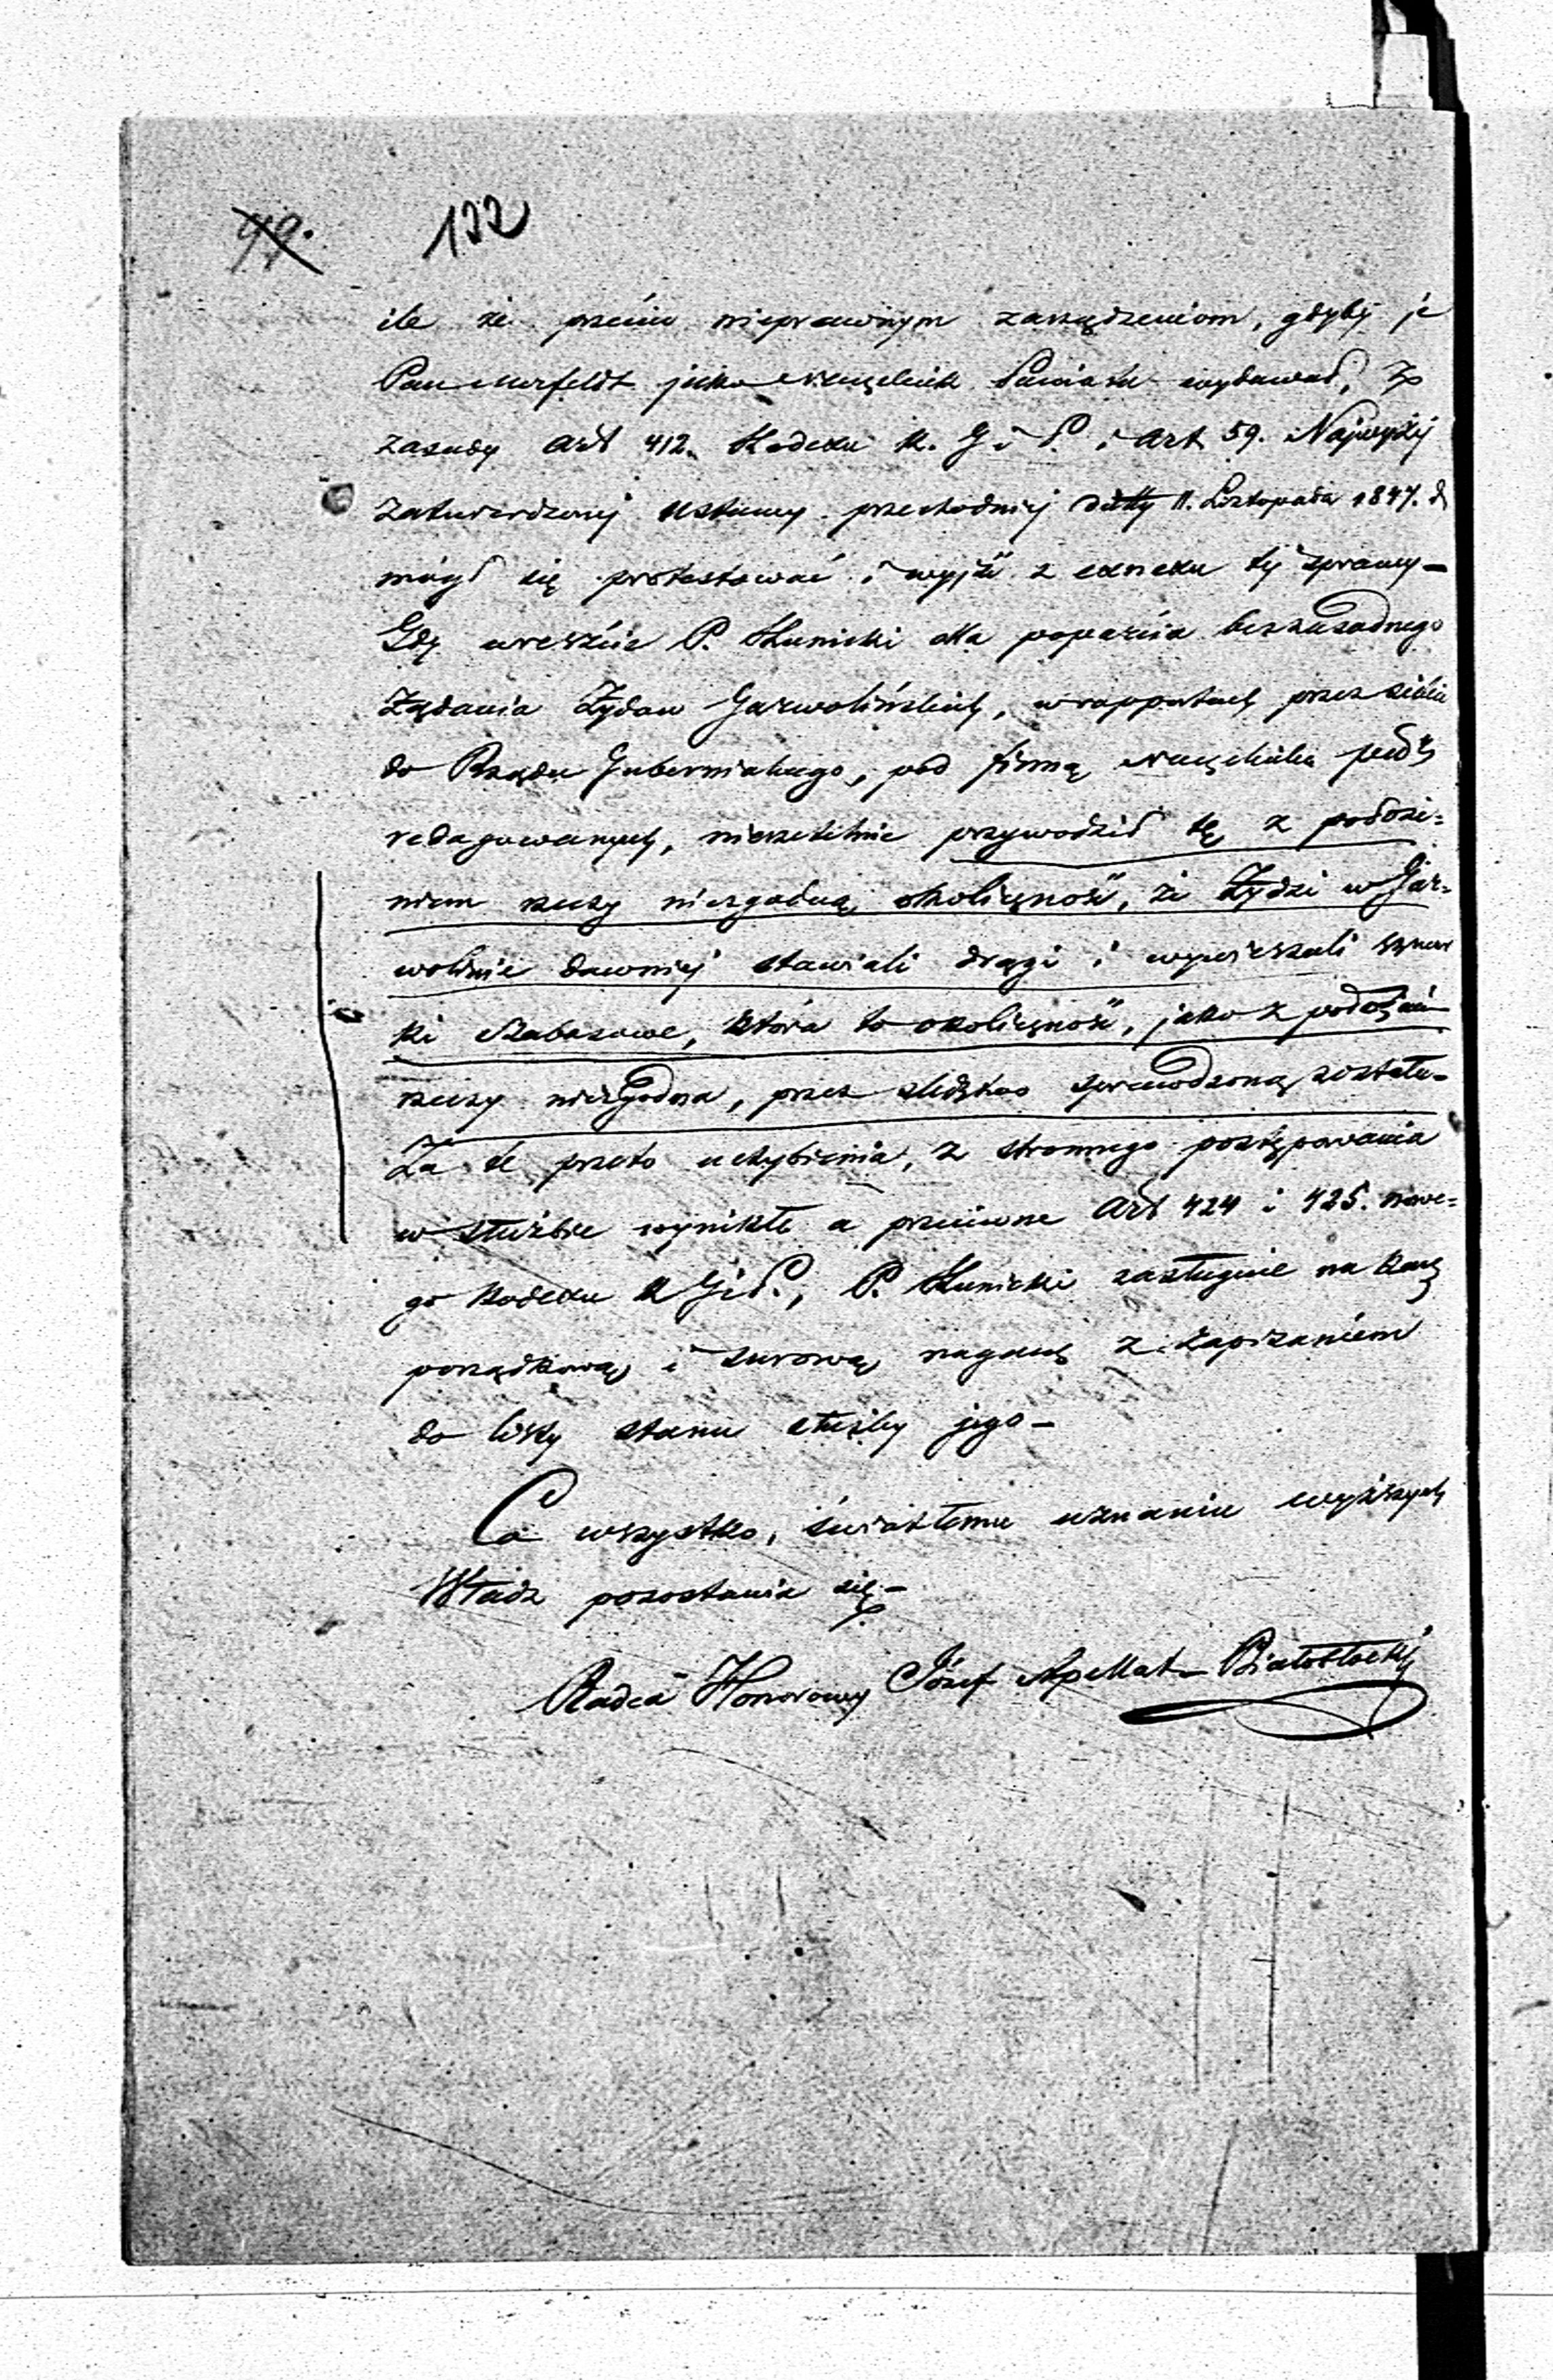 99. 122
ile że przeciw nieprawnym zarządzeniom, gdyby je
Pan jako Naczelnik Powiatu wydawał, z
zasady Art 412. Kodexu K. G i P. i Art 59. Najwyżej
zatwierdzonej Ustawy przechodniej 11. Listopada 1847. r
mógł się protestować i wyjść z tej sprawy –
Gdy wreszcie P. Łunicki dla poparcia bezzasadnego
żądania Żydów Garwolińskich, w rapportach przez siebie
do Rządu Gubernialnego, pod firmą Naczelnika
redagowanych, nierzetelnie przywodził tę, z położe=
niem rzeczy niezgodną okoliczność, że Żydzi w Gar=
wolinie dawniej stawiali drągi i wywieszali sznur
ki Szabasowe, która to okoliczność, jako z położeniem
rzeczy niezgodna, przez śledztwo sprawdzoną została –
Za te przeto uchybienia, z stronnego postępowania
w służbie wynikłe a przeciwne Art 424 i 425. nowe=
go Kodexu K G i P., P. Łunicki zasługuje na karę
porządkową i surową naganę z zapisaniem
do listy stanu służby jego –
Co wszystko, światłemu uznaniu wyższych
Władz pozostawia się –
Radca Honorowy Józef Białobłocki